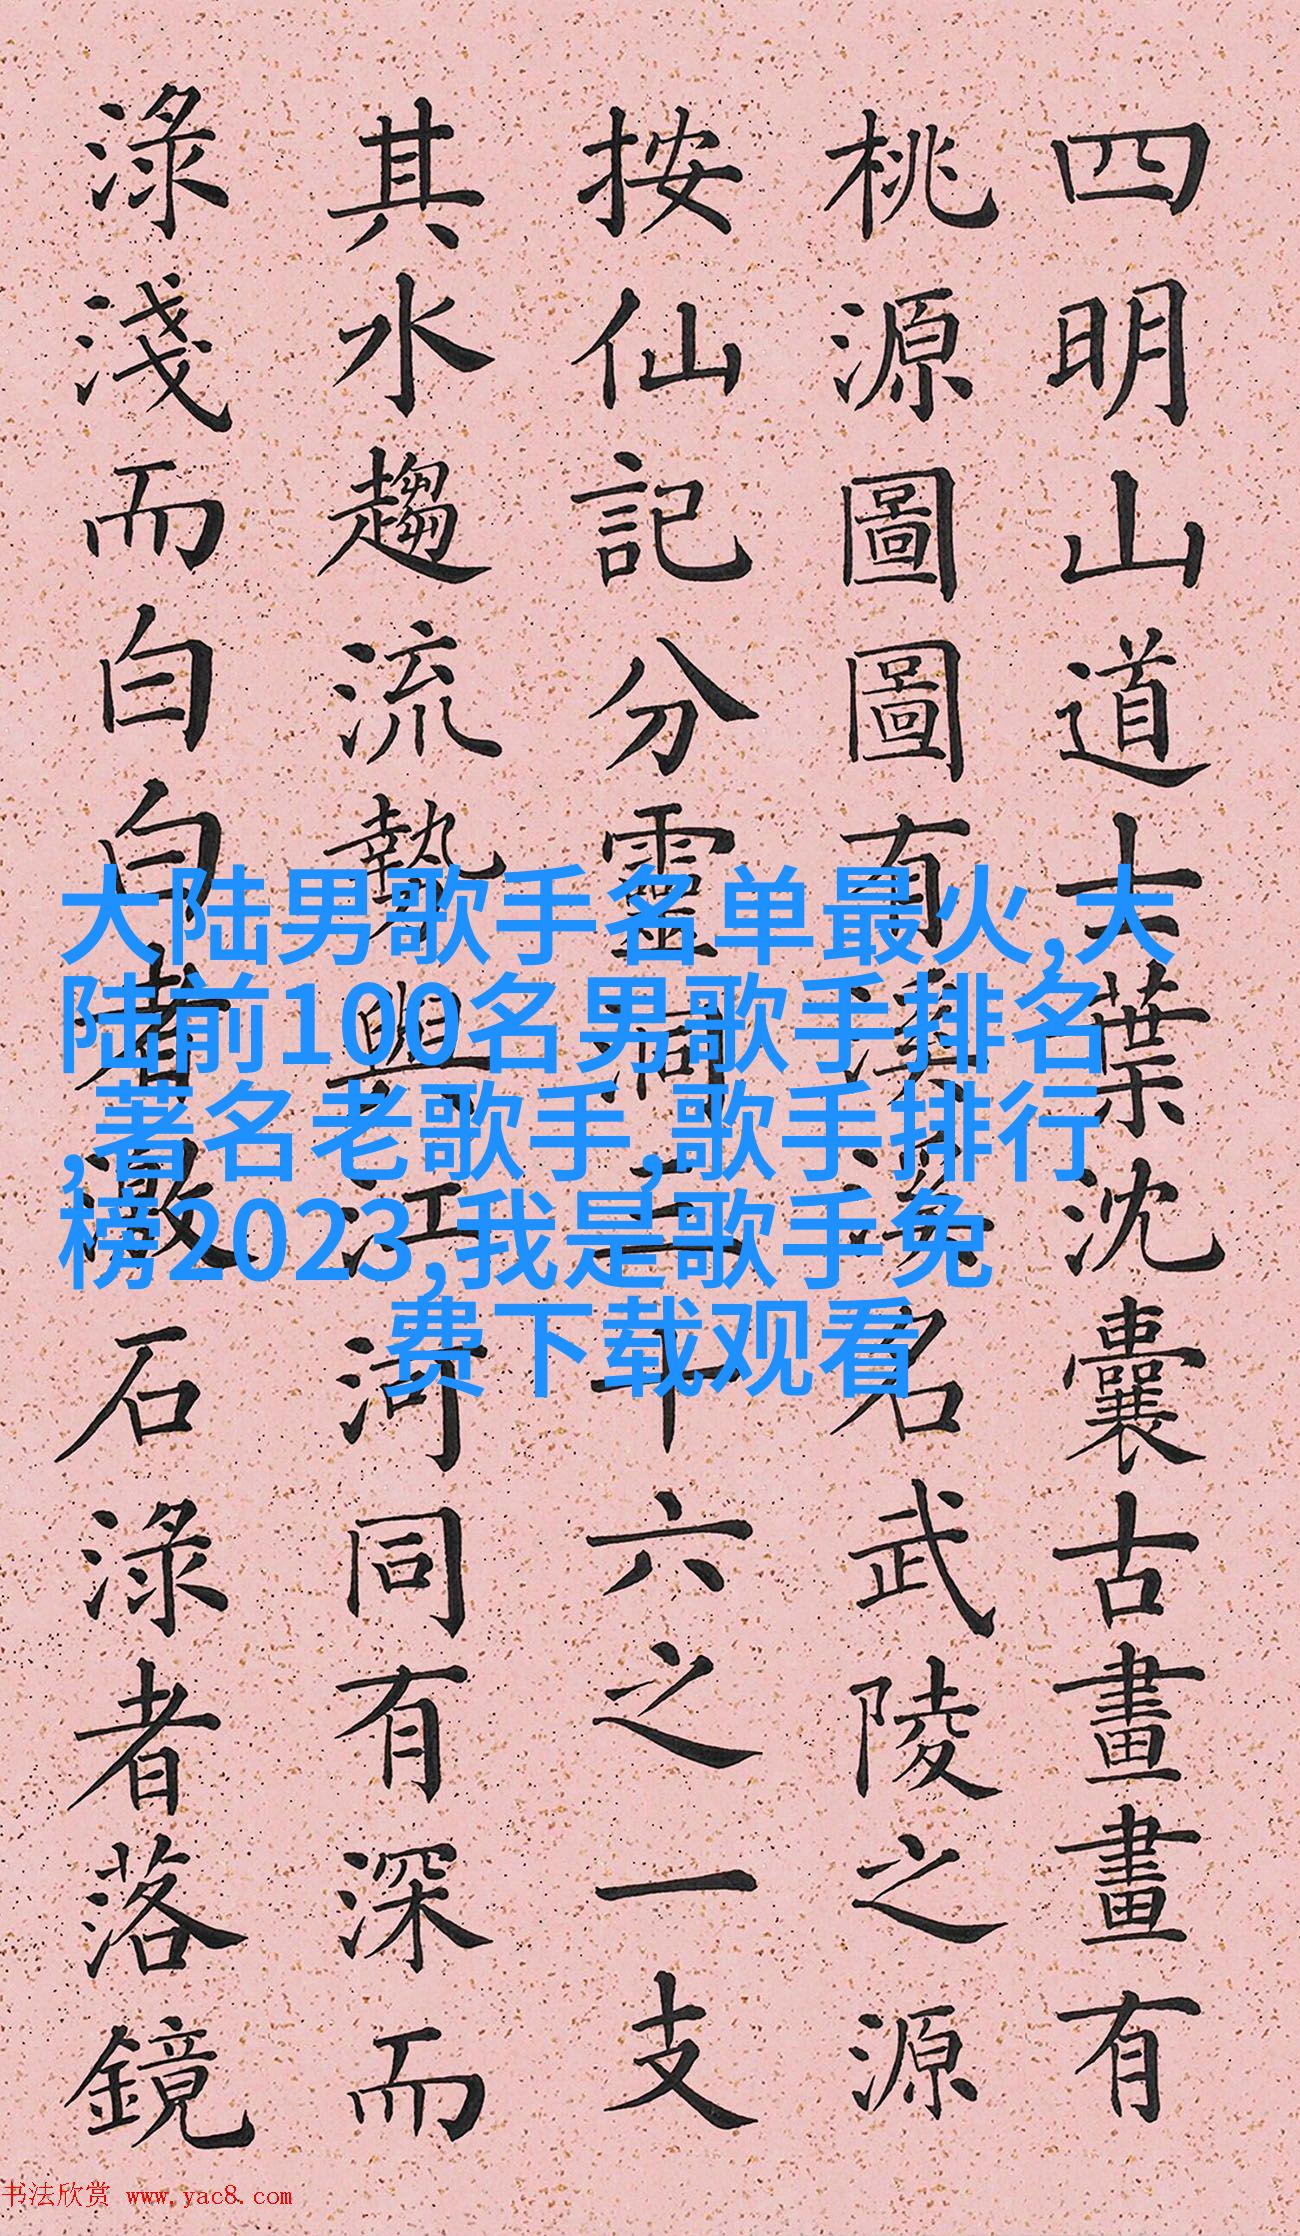 四明山道士葉沈囊古畫畫有
桃源圖圖有溪溪名武陵之源
按仙記分靈洞三十六之一支
其水趨流勢與江河同有深而
淥淺而白白者激石淥者落鏡
大陆男歌手名单最火,大
陆前100名男歌手排名
,著名老歌手,歌手排行
榜2023,我是歌手免
费下载观看
书法欣赏 www.yac8.com